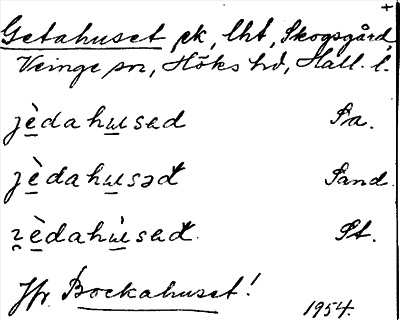 Getahuset pk, lht, Skogsgård,
Veinge sn, Höks hd, Hall. l.
jèdahusad Sa.
jèdahusəđ Sand.
èdahùsađ St.
Jfr Bockahuset!
1954.